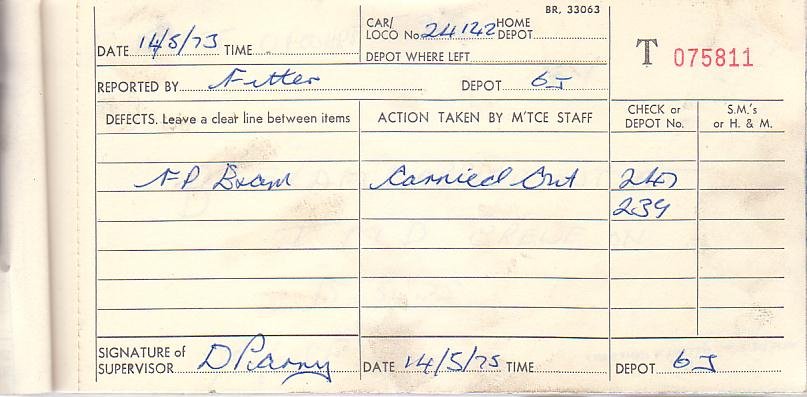 BR, 33063
DATE 14/5/73 TIME
CAR/ LOCO No. 24142 HOME DEPOT
DEPOT WHERE LEFT
T 075811
REPORTED BY Fitter DEPOT 6J
DEFECTS. Leave a clear line between items
ACTION TAKEN BY M'TCE STAFF
CHECK or DEPOT No.
S.M.'s or H. & M.
FP Exam Carried Out
239
SIGNATURE of SUPERVISOR
DATE 14/5/75 TIME DEPOT 6J